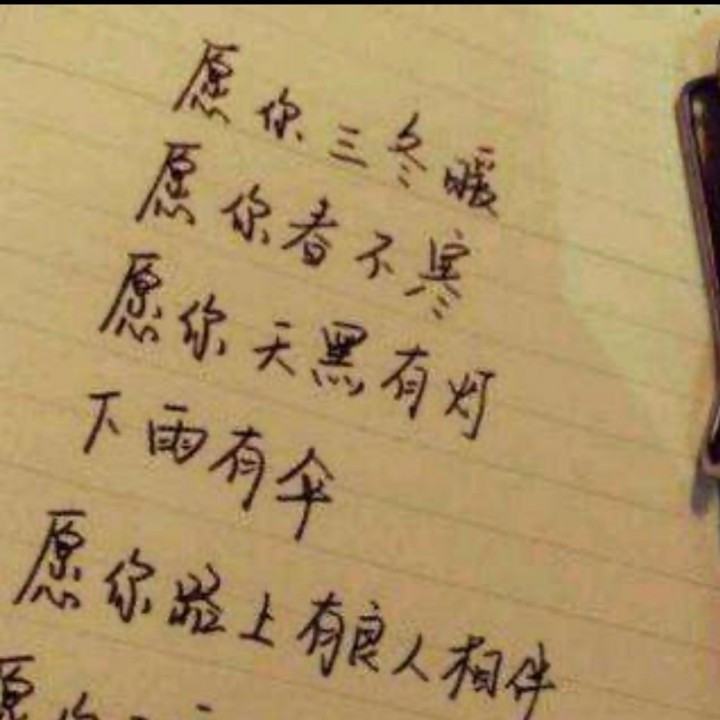 愿你三冬暖
愿你春不寒
愿你天黑有灯
下雨有伞
愿你路上有良人相伴
愿你